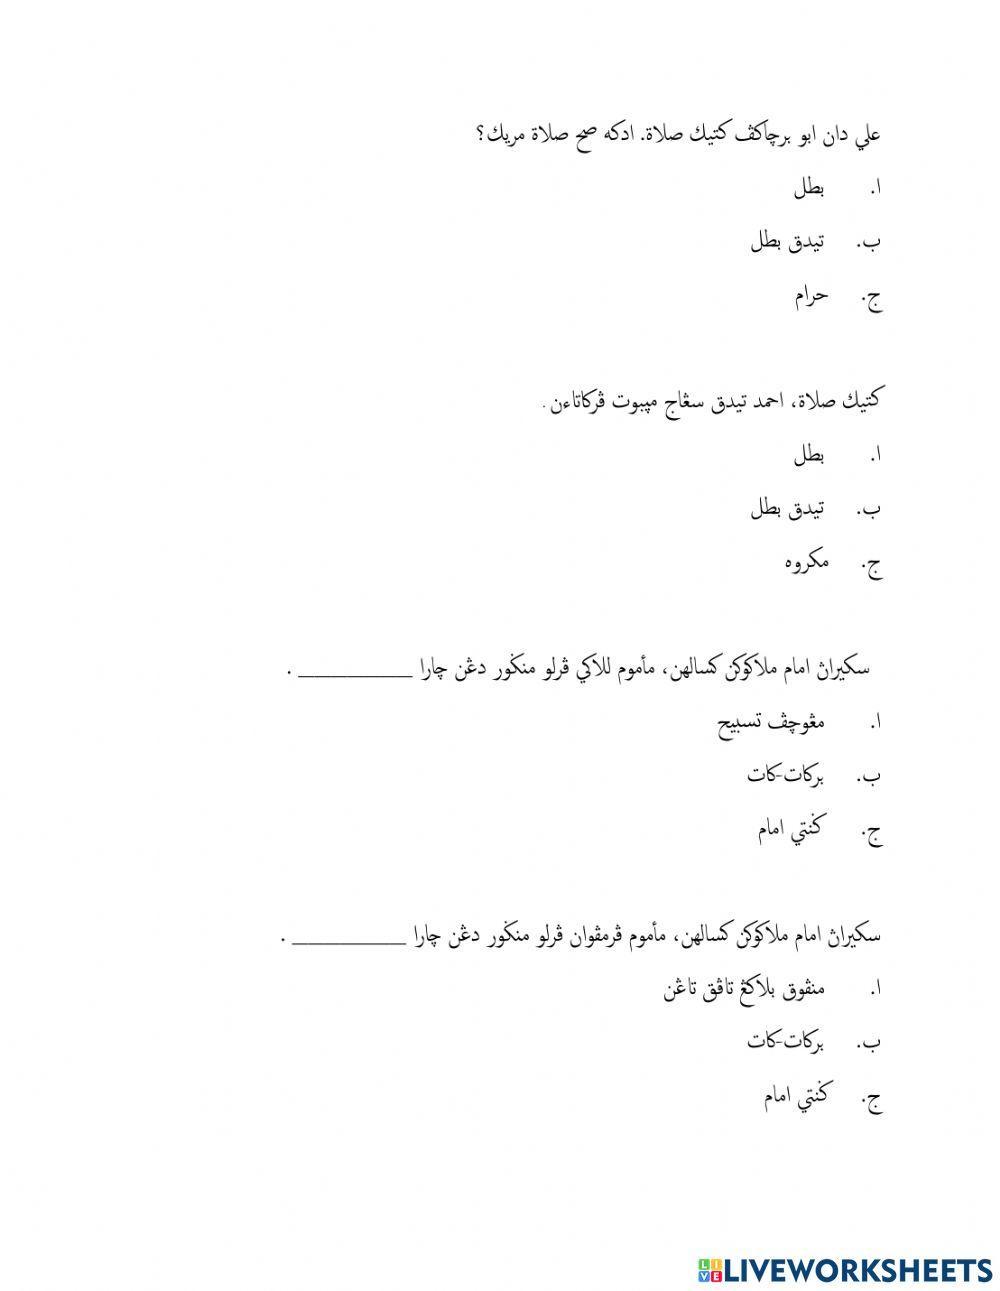 علي دان ابو برچاکڤ کتيك صلاة. ادکه صح صلاة مريك؟
ا. بطل
ب. تيدق بطل
ج. حرام
کتيك صلاة، احمد تيدق سڠاج مڽبوت ڤرکاتاءن.
ا. بطل
ب. تيدق بطل
ج. مکروه
سکيراڽ امام ملاکوکن کسالهن، مأموم للاکي ڤرلو منݢور دڠن چارا __________ .
ا. مڠوچڤ تسبيح
ب. برکات-کات
ج. ݢنتي امام
سکيراڽ امام ملاکوکن کسالهن، مأموم ڤرمڤوان ڤرلو منݢور دڠن چارا __________ .
ا. منڤوق بلاکڠ تاڤق تاڠن
ب. برکات-کات
ج. ݢنتي امام
LIVEWORKSHEETS